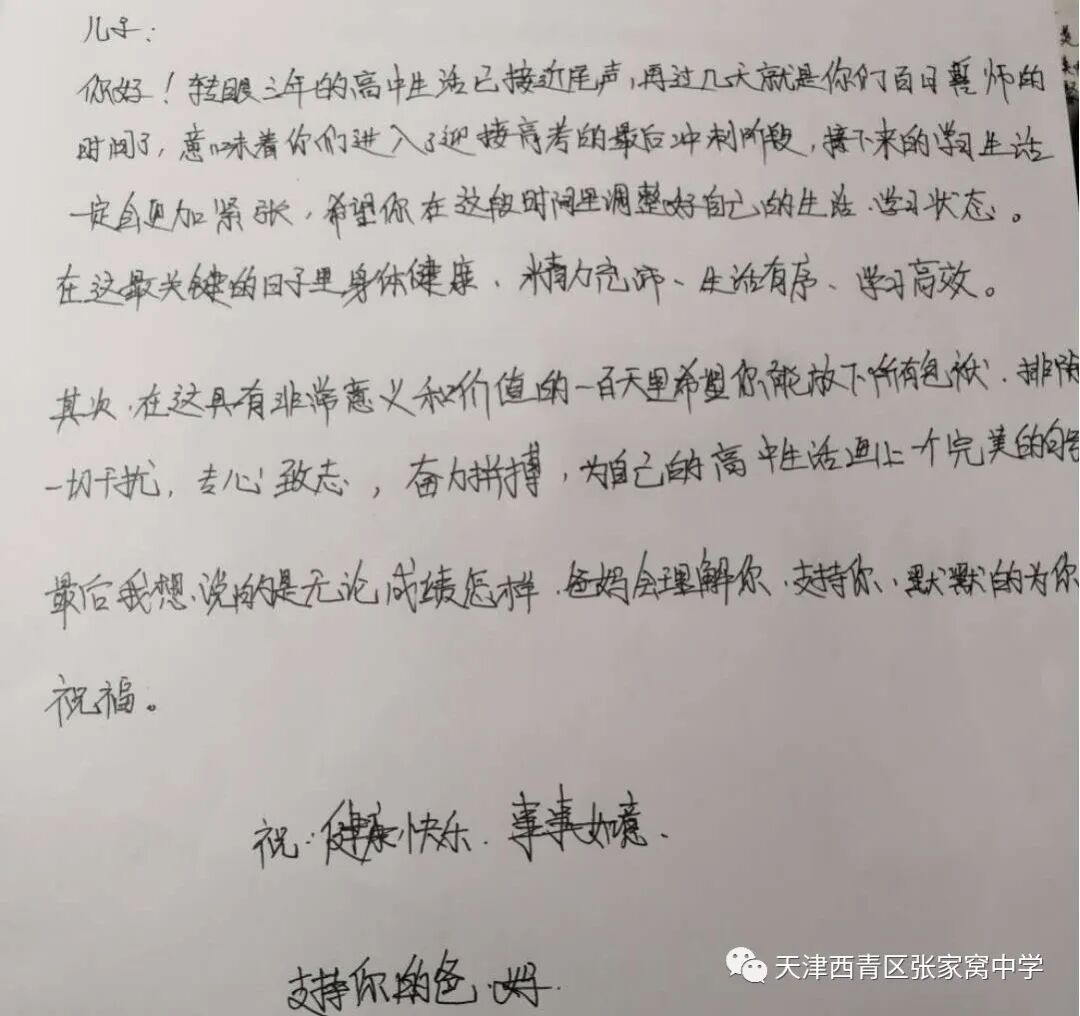 儿子：
你好！转眼三年的高中生活已接近尾声，再过几天就是你们百日誓师的
时间了，意味着你们进入了迎接高考的最后冲刺阶段，接下来的学习生活
一定会更加紧张，希望你在这段时间里调整好自己的生活、学习状态。
在这最关键的日子里身体健康、精力充沛、生活有序、学习高效。
其次，在这具有非常意义和价值的一百天里希望你能放下所有包袱，排除
一切干扰，专心致志，奋力拼搏，为自己的高中生活画上一个完美的句号
最后我想说的是无论成绩怎样，爸妈会理解你、支持你、默默的为你
祝福。
祝：健康快乐．事事如意．
支持你的爸．妈．
天津西青区张家窝中学